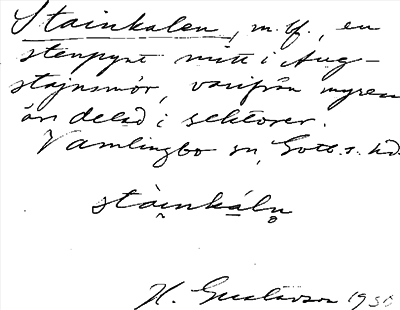 Stainkalen, m. bf., en
stenpynt mitt i Aug-
stajnsmör, varifrån myren
är delad i sektorer.
Vamlingbo sn, Gotl. s. hd.
stàinkáln
H. Gustavson 193